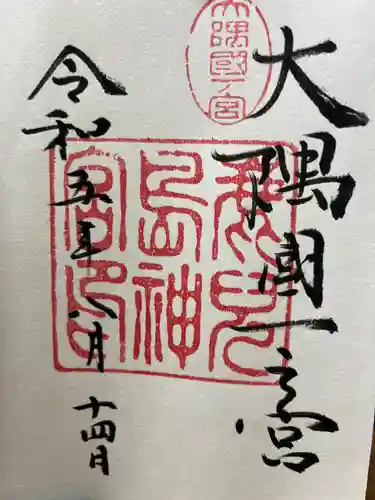 大隅國一宮
大隅國一之宮
鹿児島神宮印
令和五年八月
十四日